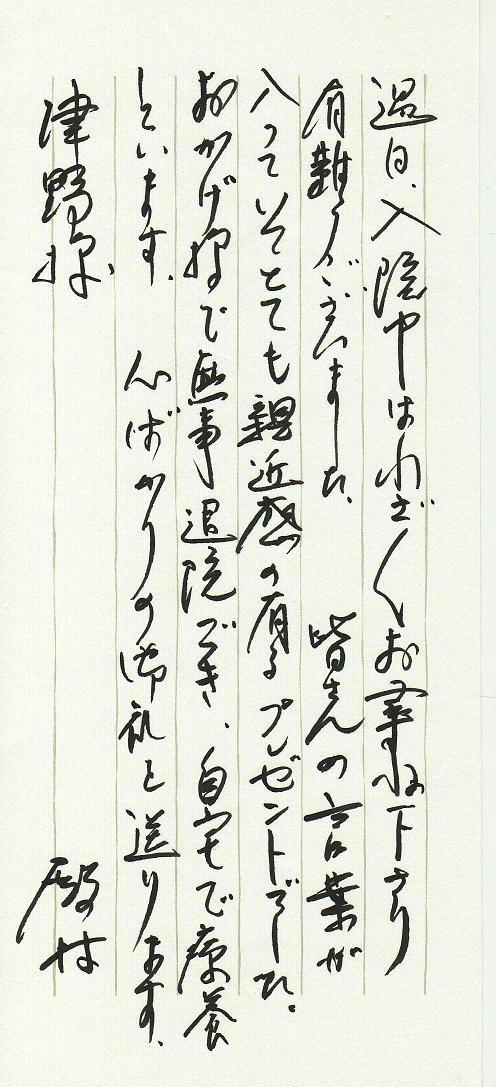 過日、入院中はわざ〱お尋ね下さり
有難うございました。 皆さんの言葉が
入っていてとても親近感の有るプレゼントでした。
おかげ様で無事退院でき、自宅で療養
しています。 心ばかりの御礼を送ります。
津野様 殿村